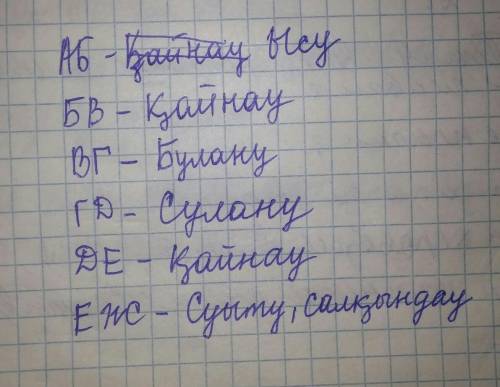 АБ - Қайнау Ысу
БВ - Қайнау
ВГ - Булану
ГД - Сулану
ДЕ - Қайнау
ЕЖ - Суыту, салқындау